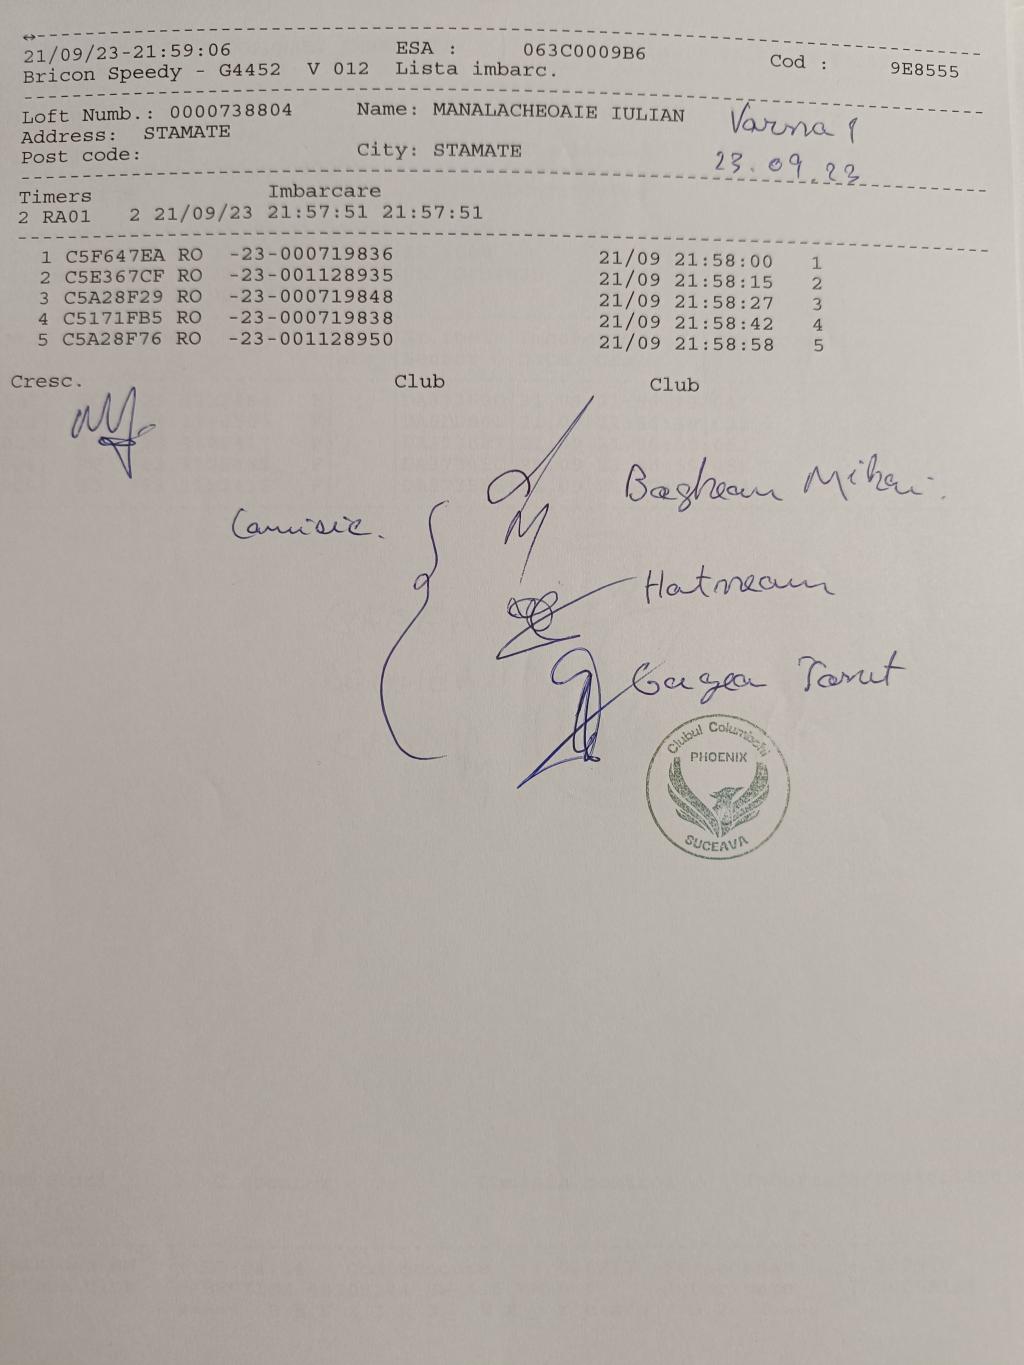 21/09/23-21:59:06 ESA : 063C0009B6 Cod : 9E8555
Bricon Speedy - G4452 V 012 Lista imbarc.
Loft Numb.: 0000738804 Name: MANALACHEOAIE IULIAN
Varna 1
Address: STAMATE
Post code: City: STAMATE
23.09.23
Timers Imbarcare
2 RA01 2 21/09/23 21:57:51 21:57:51
1 C5F647EA RO -23-000719836 21/09 21:58:00 1
2 C5E367CF RO -23-001128935 21/09 21:58:15 2
3 C5A28F29 RO -23-000719848 21/09 21:58:27 3
4 C5171FB5 RO -23-000719838 21/09 21:58:42 4
5 C5A28F76 RO -23-001128950 21/09 21:58:58 5
Cresc. Club Club
Mihai
Clubul Columbofil
PHOENIX
SUCEAVA